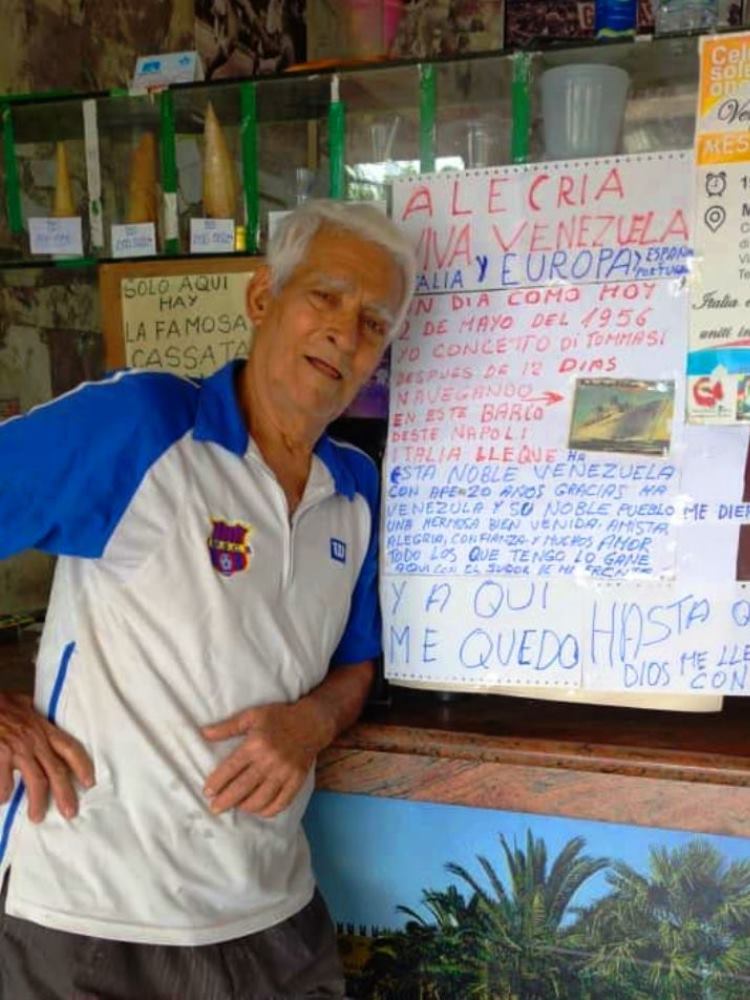 ALECRIA
VIVA VENEZUELA
Y EUROPA Y ESPAÑA
PORTUGAL
UN DIA COMO HOY
2 DE MAYO DEL 1956
YO CONCETTO Di TOMMASI
DESPUES DE 12 DIAS
NAVEGANDO
EN ESTE BARCO
DESTE NAPOLI
ITALIA LLEGUE HA
ESTA NOBLE VENEZUELA
CON APENAZO AÑOS GRACIAS HA
VENEZULA Y SU NOBLE PUEBLO ME DIER
UNA HERMOSA BIEN VENIDA, AMISTA
ALEGRIA, CONFIANZA Y MUCHOS AMOR
TODO LOS QUE TENGO LO GANE
AQUI CON EL SUDOR DE MI FRENTE
Y AQUI
ME QUEDO
HASTA Q
DIOS ME LLE
CON
SOLO AQUI
HAY
LA FAMOSA
CASSATA
Cele
soli
one
MES
Italia
uniti
W